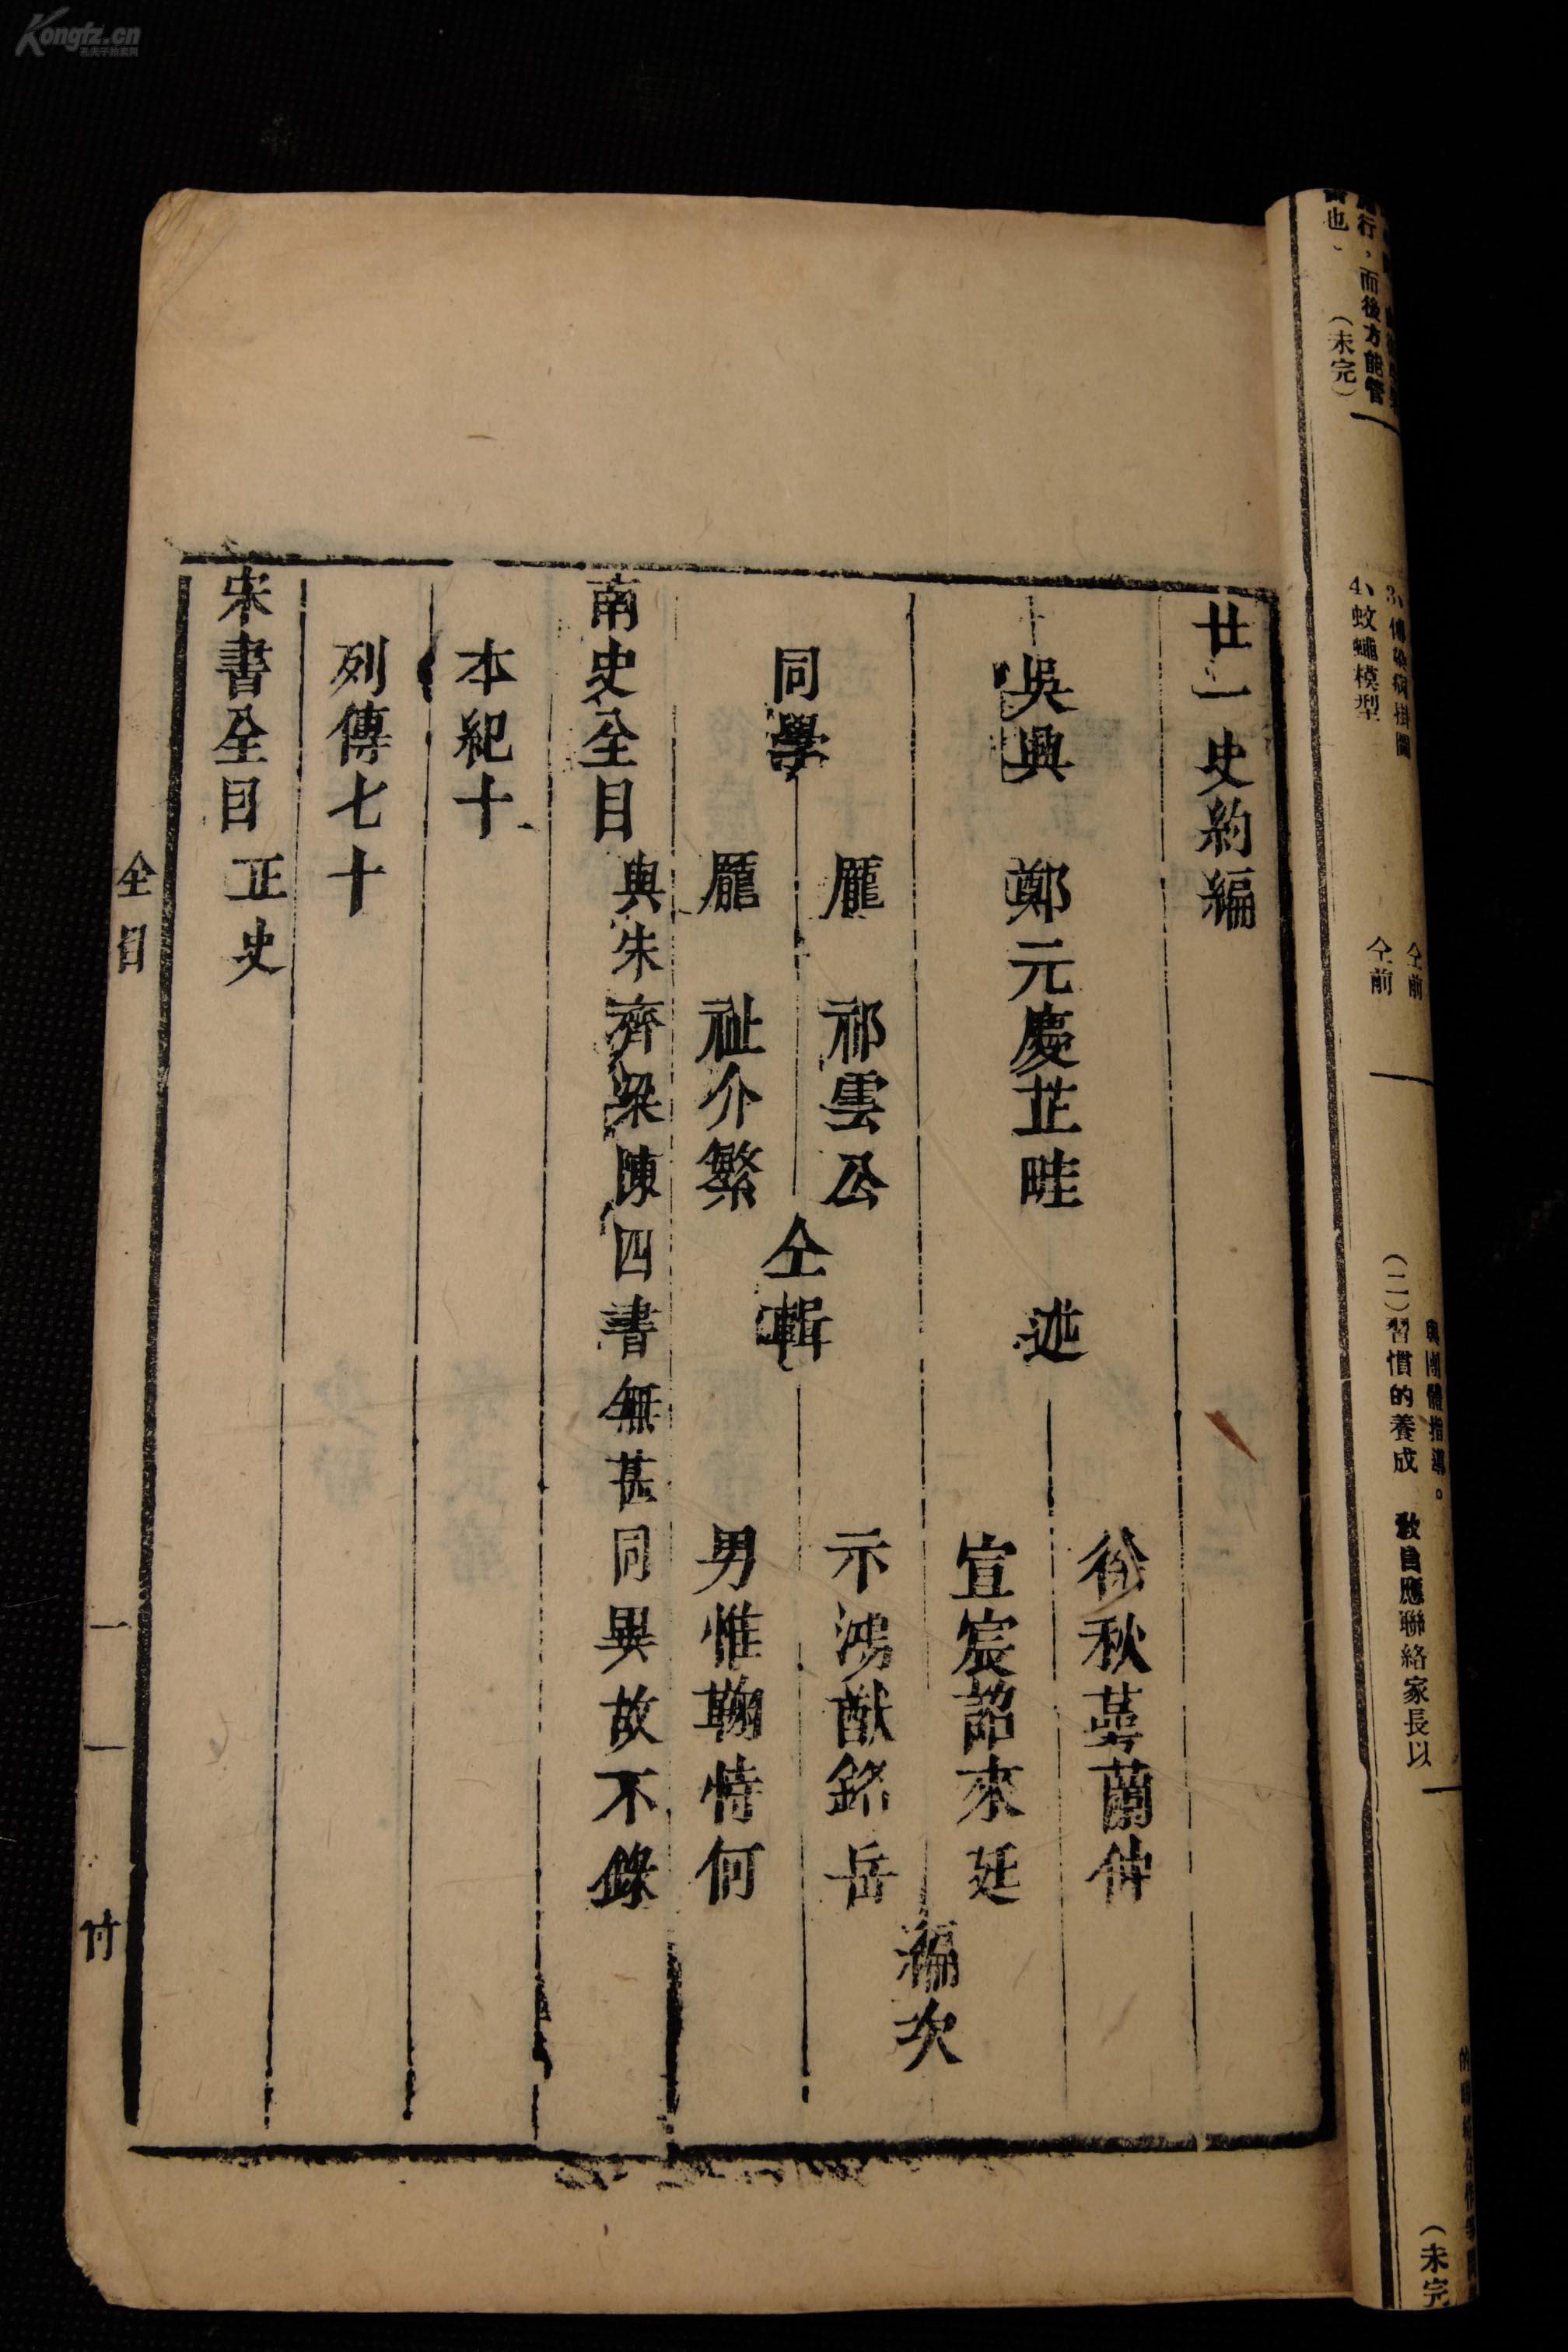 廿一史約編
吳興 鄭元慶芷畦 述
徐秋蕚蘭仲
宣宸詔來廷
示鴻猷銘岳
男惟鞠特何
編次
同學
龎 祁雲公
龎 祉介繁
仝輯
南史全目 與朱齊梁陳四書無甚同異故不錄
本紀十
列傳七十
宋書全目 正史
全目 一 竹
行，而後方能管
也、 (未完)
4、蚊蠅模型 仝前
3、傳染病掛圖 仝前
團體指導。
(二)習慣的養成 教員應聯絡家長以
(未完
Kongfz.cn